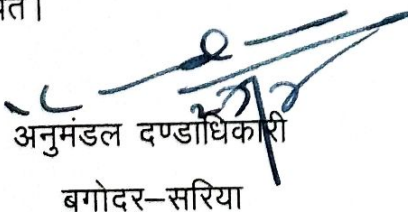 अनुमंडल दण्डाधिकारी
बगोदर–सरिया